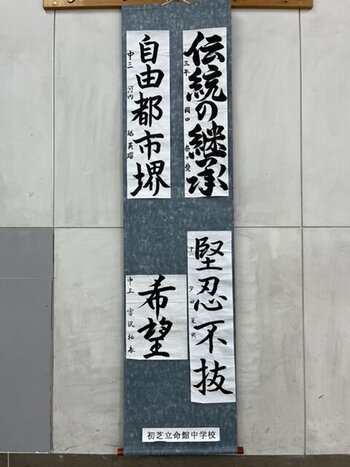 伝統の継承
三年
自由都市堺
中三 河内
堅忍不抜
希望
中三 宮沢
初芝立命館中学校